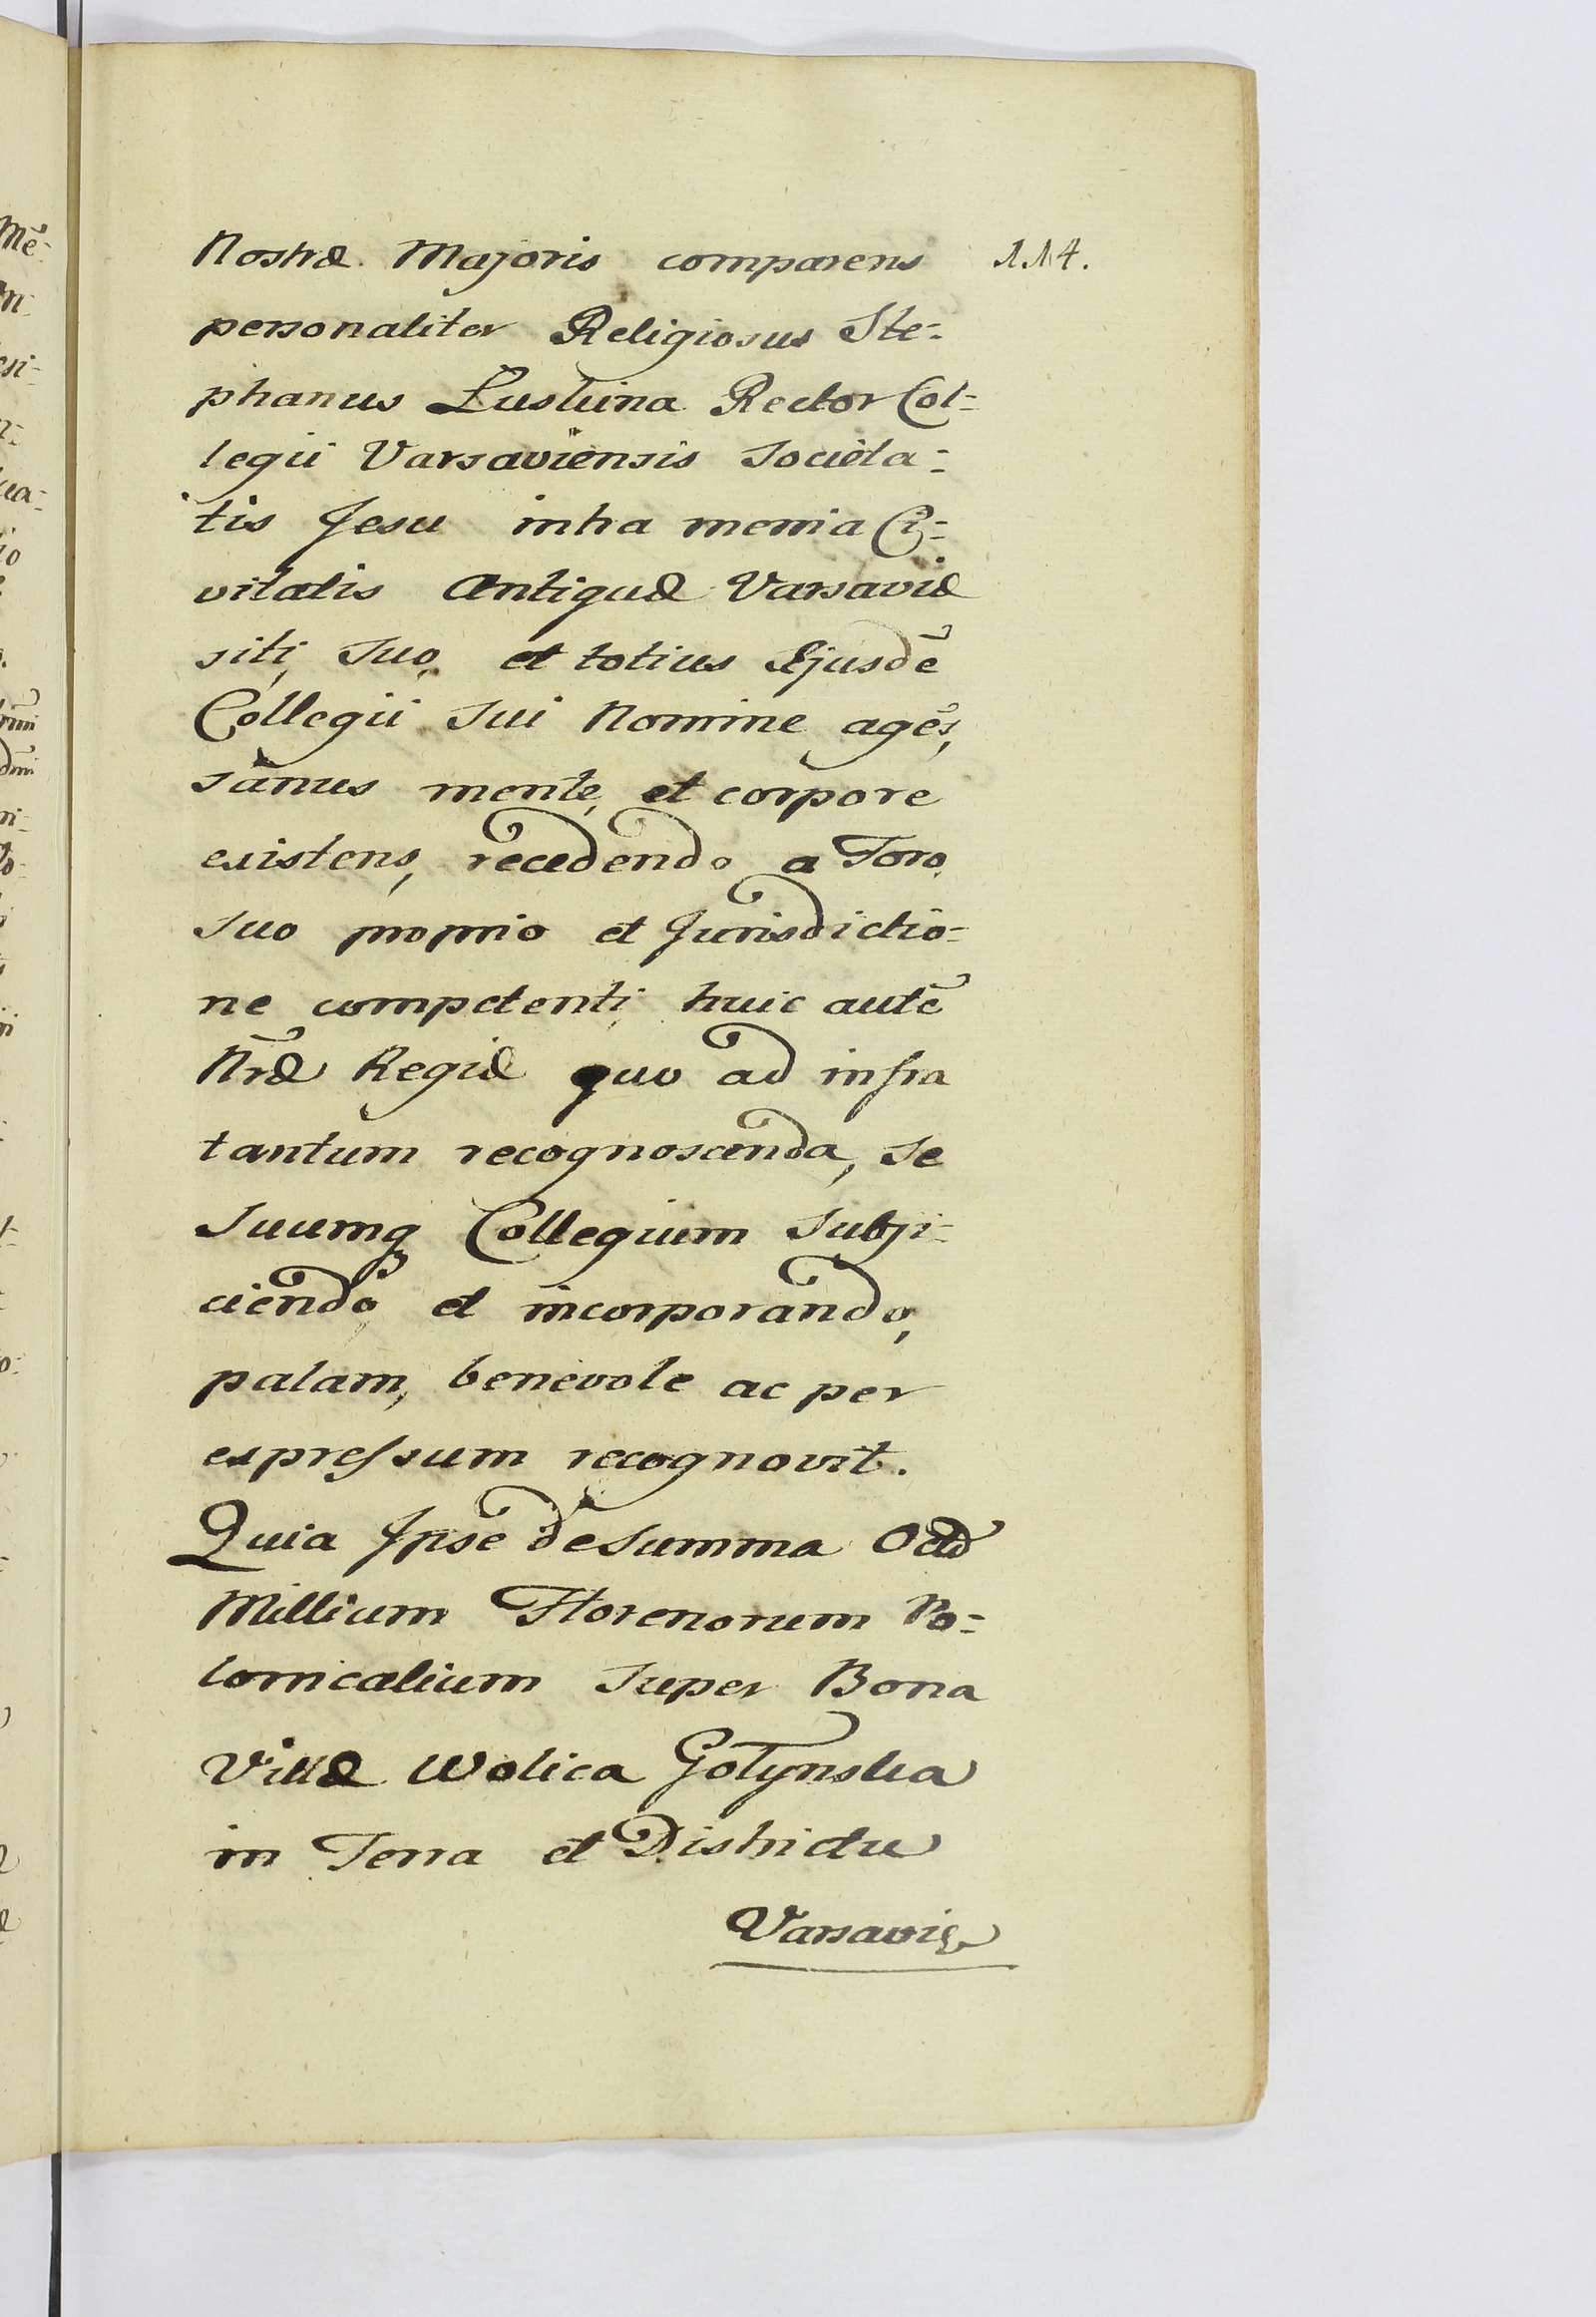 114.
Nostræ Majoris comparens
personaliter Religiosus Ste=
phanus Łuskina Rector Col=
legii Varsaviensis Societa=
tis Jesu intra menia Ci=
vitatis Antiquæ Varsaviæ
siti, suo, et totius Ejusdē
Collegii sui Nomine agēs,
sanus mente, et corpore
existens, recedendo a Foro
suo proprio et Jurisdictio=
ne competenti, huic autē
Nræ Regiæ quo ad infra
tantum recognoscenda, se
suumq Collegium subji=
ciendo et incorporando,
palam, benevole ac per
expressum recognovit.
Quia Ipse de summa Octo
Millium Florenorum Po=
lonicalium super Bona
Villæ Wolica Gołynska
in Terra et Districtu
Varsaviæ